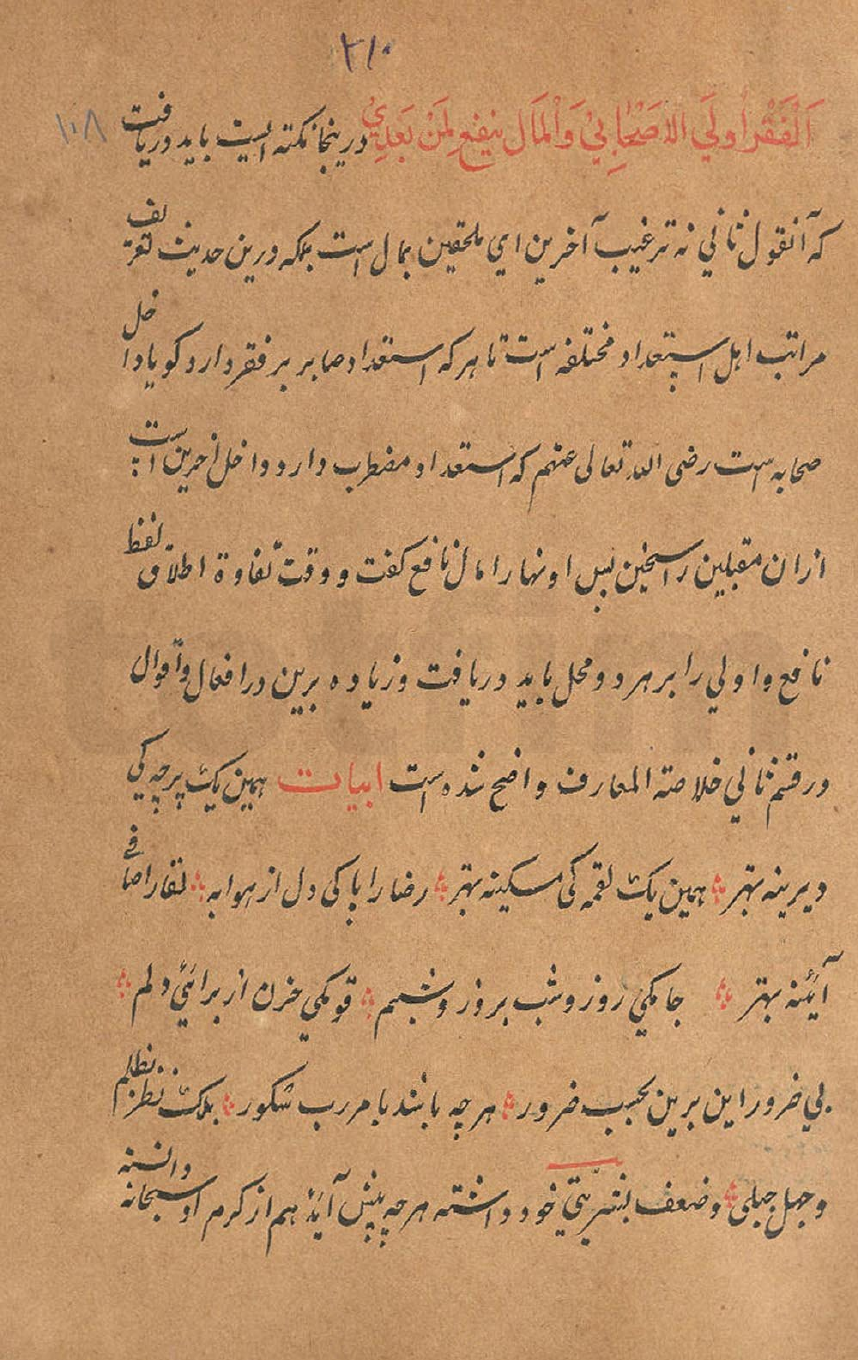 ۲۱۰
۱۰۸
اَلْفَقْرُ اَولَي الاَصْحَابِيْ وَالْمَال ينفع لِمَنْ بَعَدِيْ درینجا نکته ایست باید دریافت
که آنقول ثاني نه ترغیب آخرین اي ملحقین بمال است بلکه درین حدیث تعریف
مراتب اهل استعداد مختلفه است تا هرکه استعداد صابر بر فقر دارد کویا داخل
صحابه است رضی الله تعالی عنهم که استعداد مضطرب دارد داخل آخرین است
ازان مقبلین راسخین پس اونها را مال نافع کفت و وقت تفاوة اطلاق لفظ
نافع و اولي را بر هر دو محل باید دریافت و زیاده برین در افعال و اقوال
در قسم ثاني خلاصة المعارف واضح شده است ابیات همین یک پرچه کي
دیرینه بهتر همین یک لقمه کی مسکینه بهتر رضا را با کی دل از هوا به لقا را صافے
آئنه بهتر جامکي روز و شب بروز و شبم قومکي حزن از برائيْ دلم
بي ضرور این برین بحسب ضرور هرچه باشد بامر رب شکور بلک نظر بظلم
و جهل جبلی و ضعف بشریتي خود داشته هرچه پیش آید هم از کرم او سبحانه دانسته